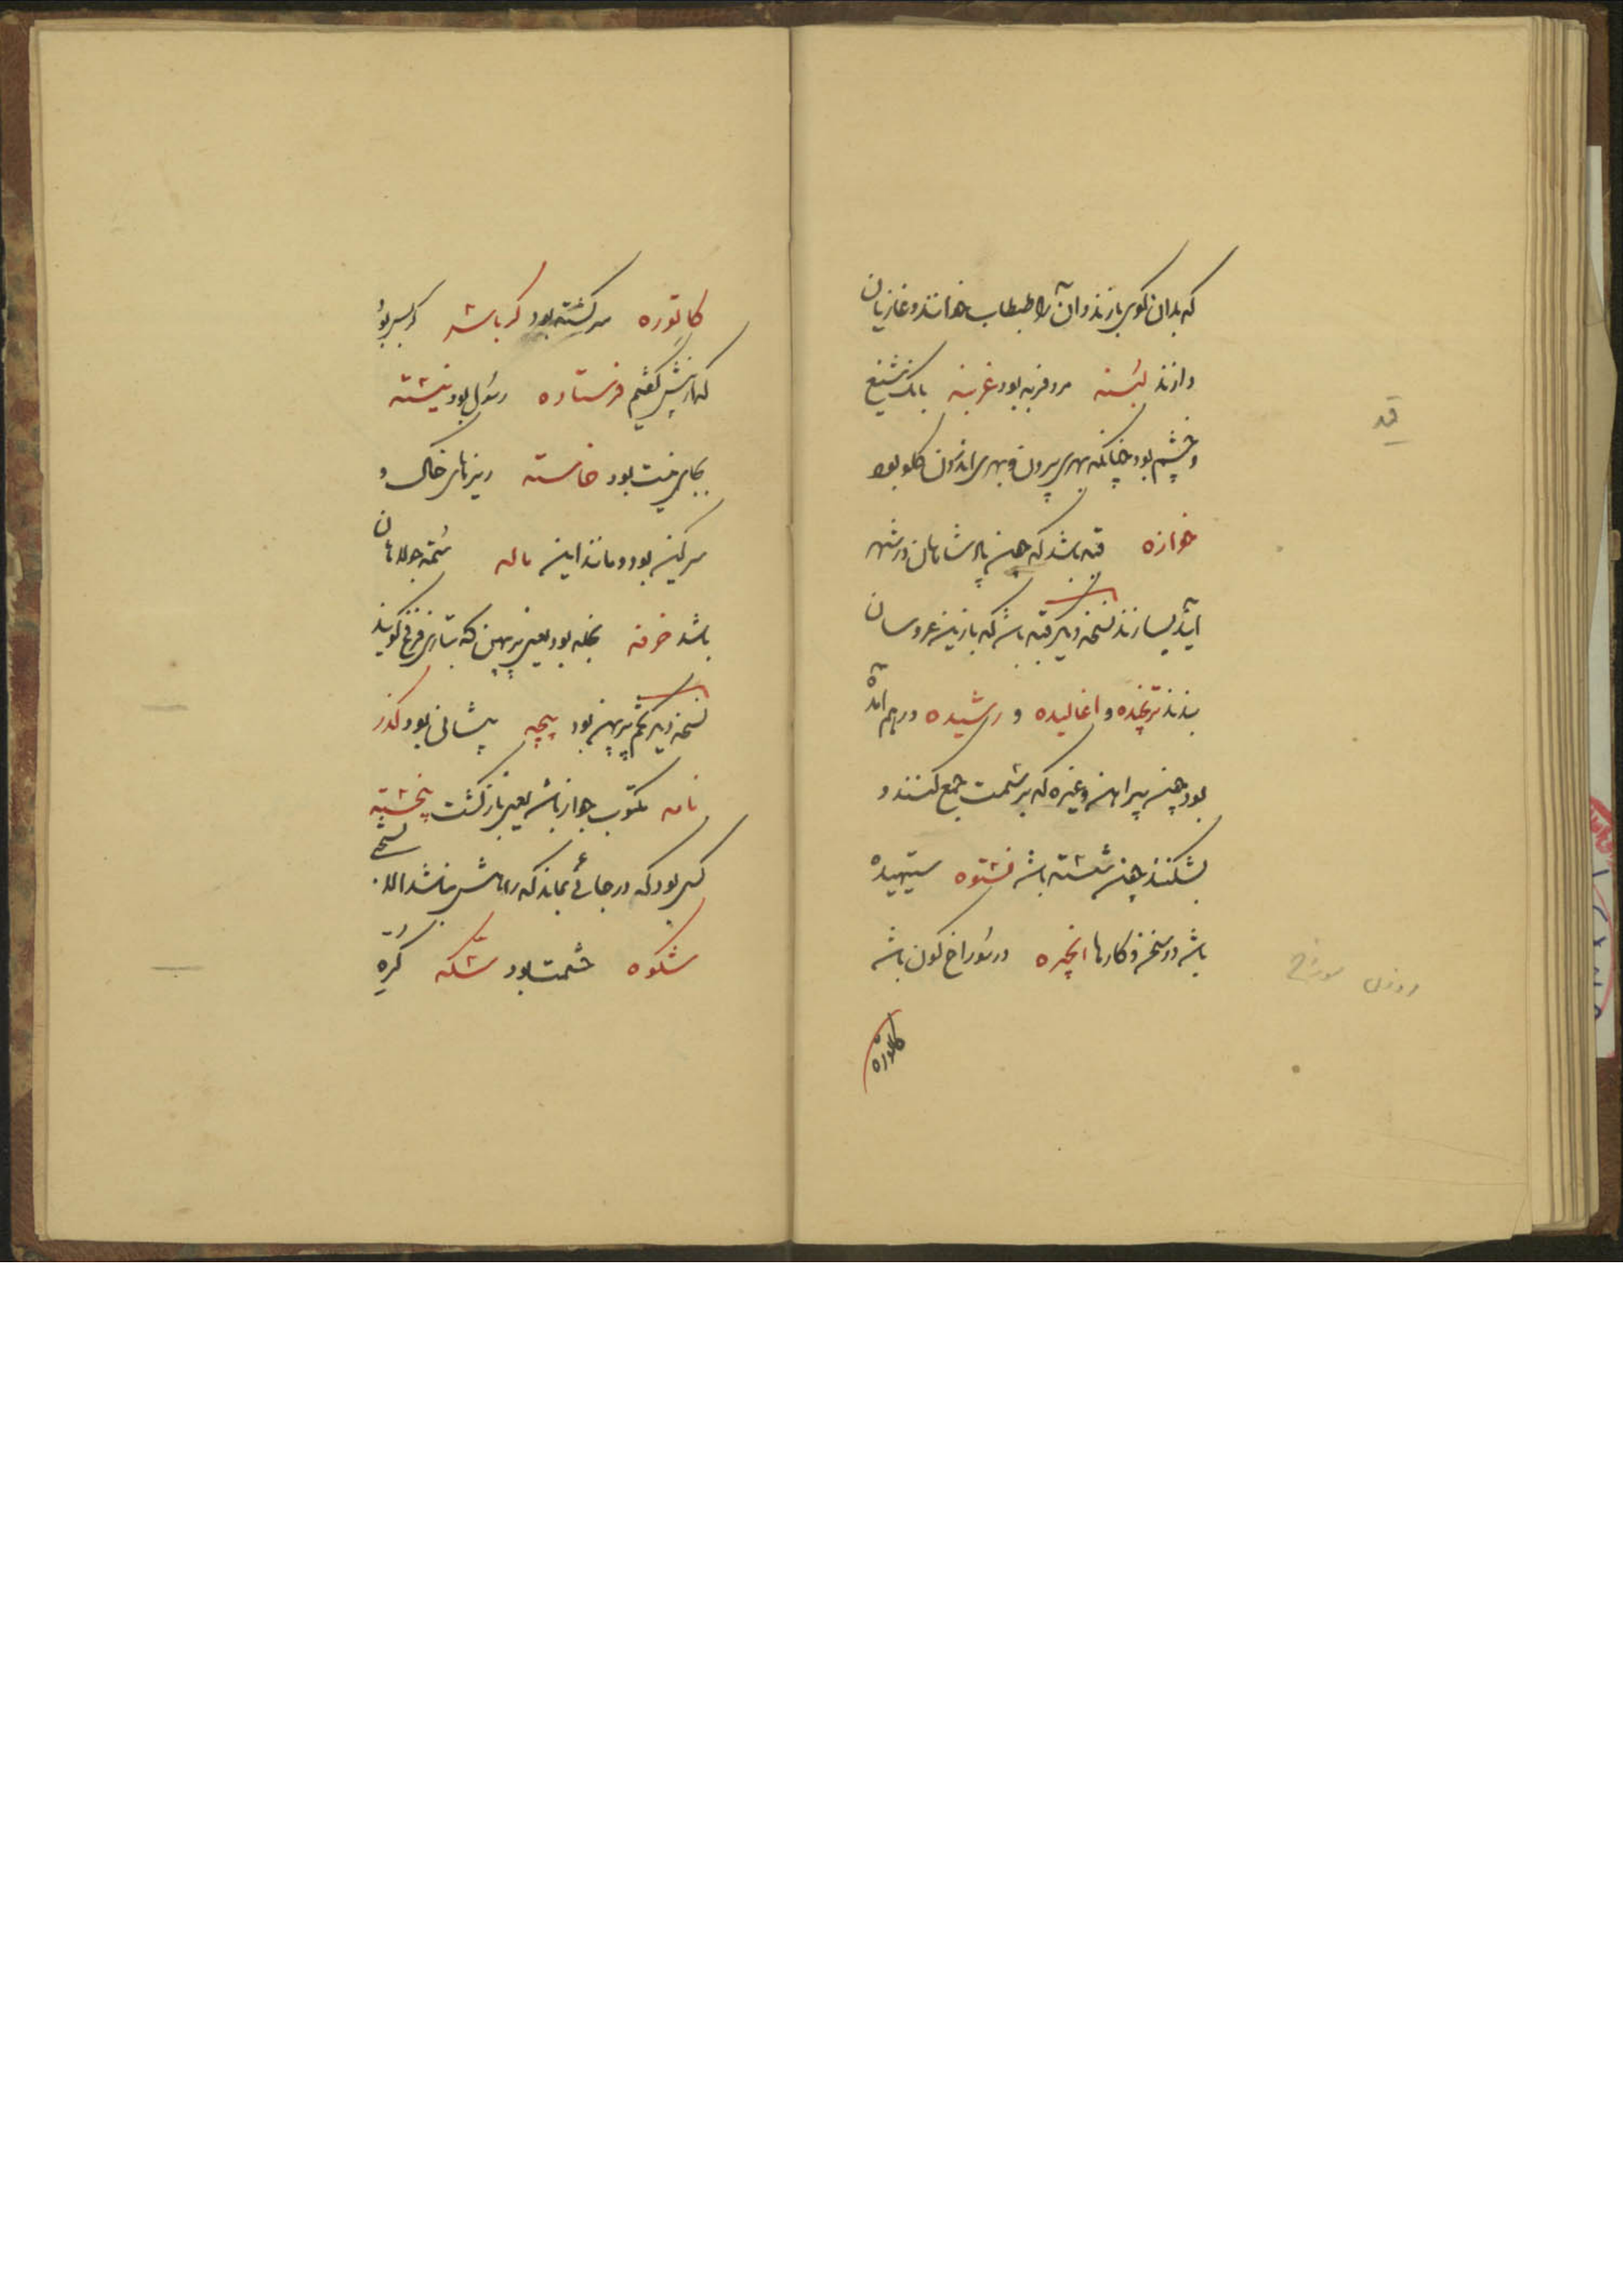 که بدان کوی بازند و آن را طبطاب خوانند و غازیان
دارند لبنه مرد فربه بود غرنبه بانک تشنیع
و خشم بود چنانکه بهری بیرون و بهری اندرون کلو بود
خوازه قبه باشد که چون پادشاهان در شهر
آیند بسازند نسخه دیگر قبه باشد که بازینن عروسان
بندند ترنجیده و اغالیده و رشیده درهم آمده
بود چون پیراهن و غیره که بر شمت جمع کنند و
بشکنند چون شسته باشد فشتوه ستیهیده
باشد در سخن و کارها انجیره در سوراخ کون باشد
کاتوره
روزن سوراخ
کاتوره سرکشته بود کرباشه کربسو بود
که از پیش کفتیم فرستاده رسول بود نبشته
بجای بود خاسته ریزهای خاک و
سرکین بود و مانند این ماله شمه جولاهان
باشد خرفه بخله بود یعنی پرپهن که بتازی فرفخ کویند
نسخه دیکر تخم پرپهن بود پیچه پیشانی بود کذر
نامه مکتوب جواز باشد یعنی بازکشت پخشته
کسی بود که در جائی بماند که راهش نباشد الا بسختی
شکوه حشمت بود شکه کره